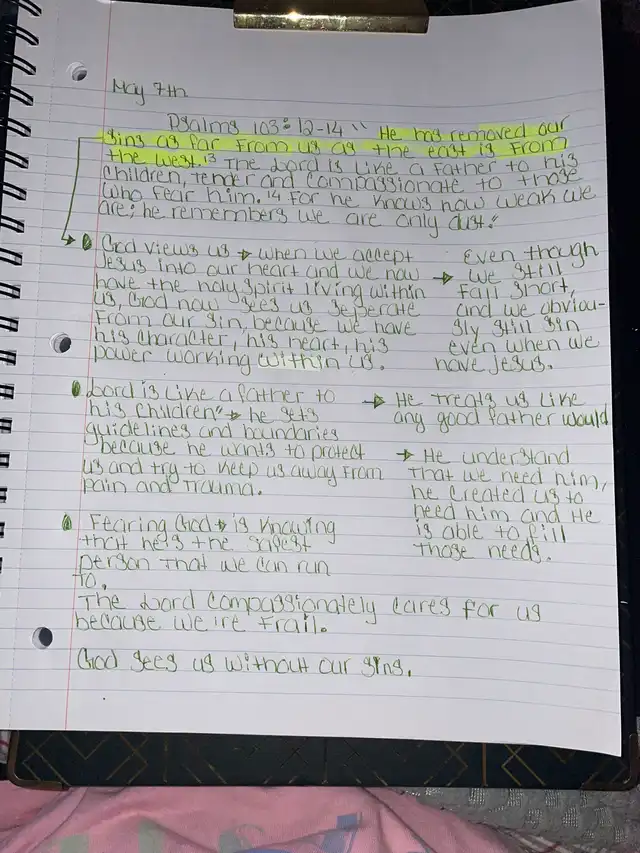 May 7th
Psalms 103:12-14 "He has removed our
sins as far from us as the east is from
the west. 13 The Lord is like a father to his
children, tender and compassionate to those
who fear him. 14 For he knows how weak we
are; he remembers we are only dust."
God views us → when we accept
Jesus into our heart and we now
have the holy spirit living within
us, God now sees us seperate
from our sin, because we have
his character, his heart, his
power working within us.
Even though
→ we still
fall short,
and we obviou-
sly still sin
even when we
have Jesus.
Lord is like a father to
his children" → he sets
guidelines and boundaries
because he wants to protect
us and try to keep us away from
pain and trauma.
→ He treats us like
any good father would
→ He understand
that we need him,
he created us to
need him and He
is able to fill
those needs.
Fearing God → is knowing
that he is the safest
person that we can run
to.
The Lord compassionately cares for us
because we're frail.
God sees us without our sins.